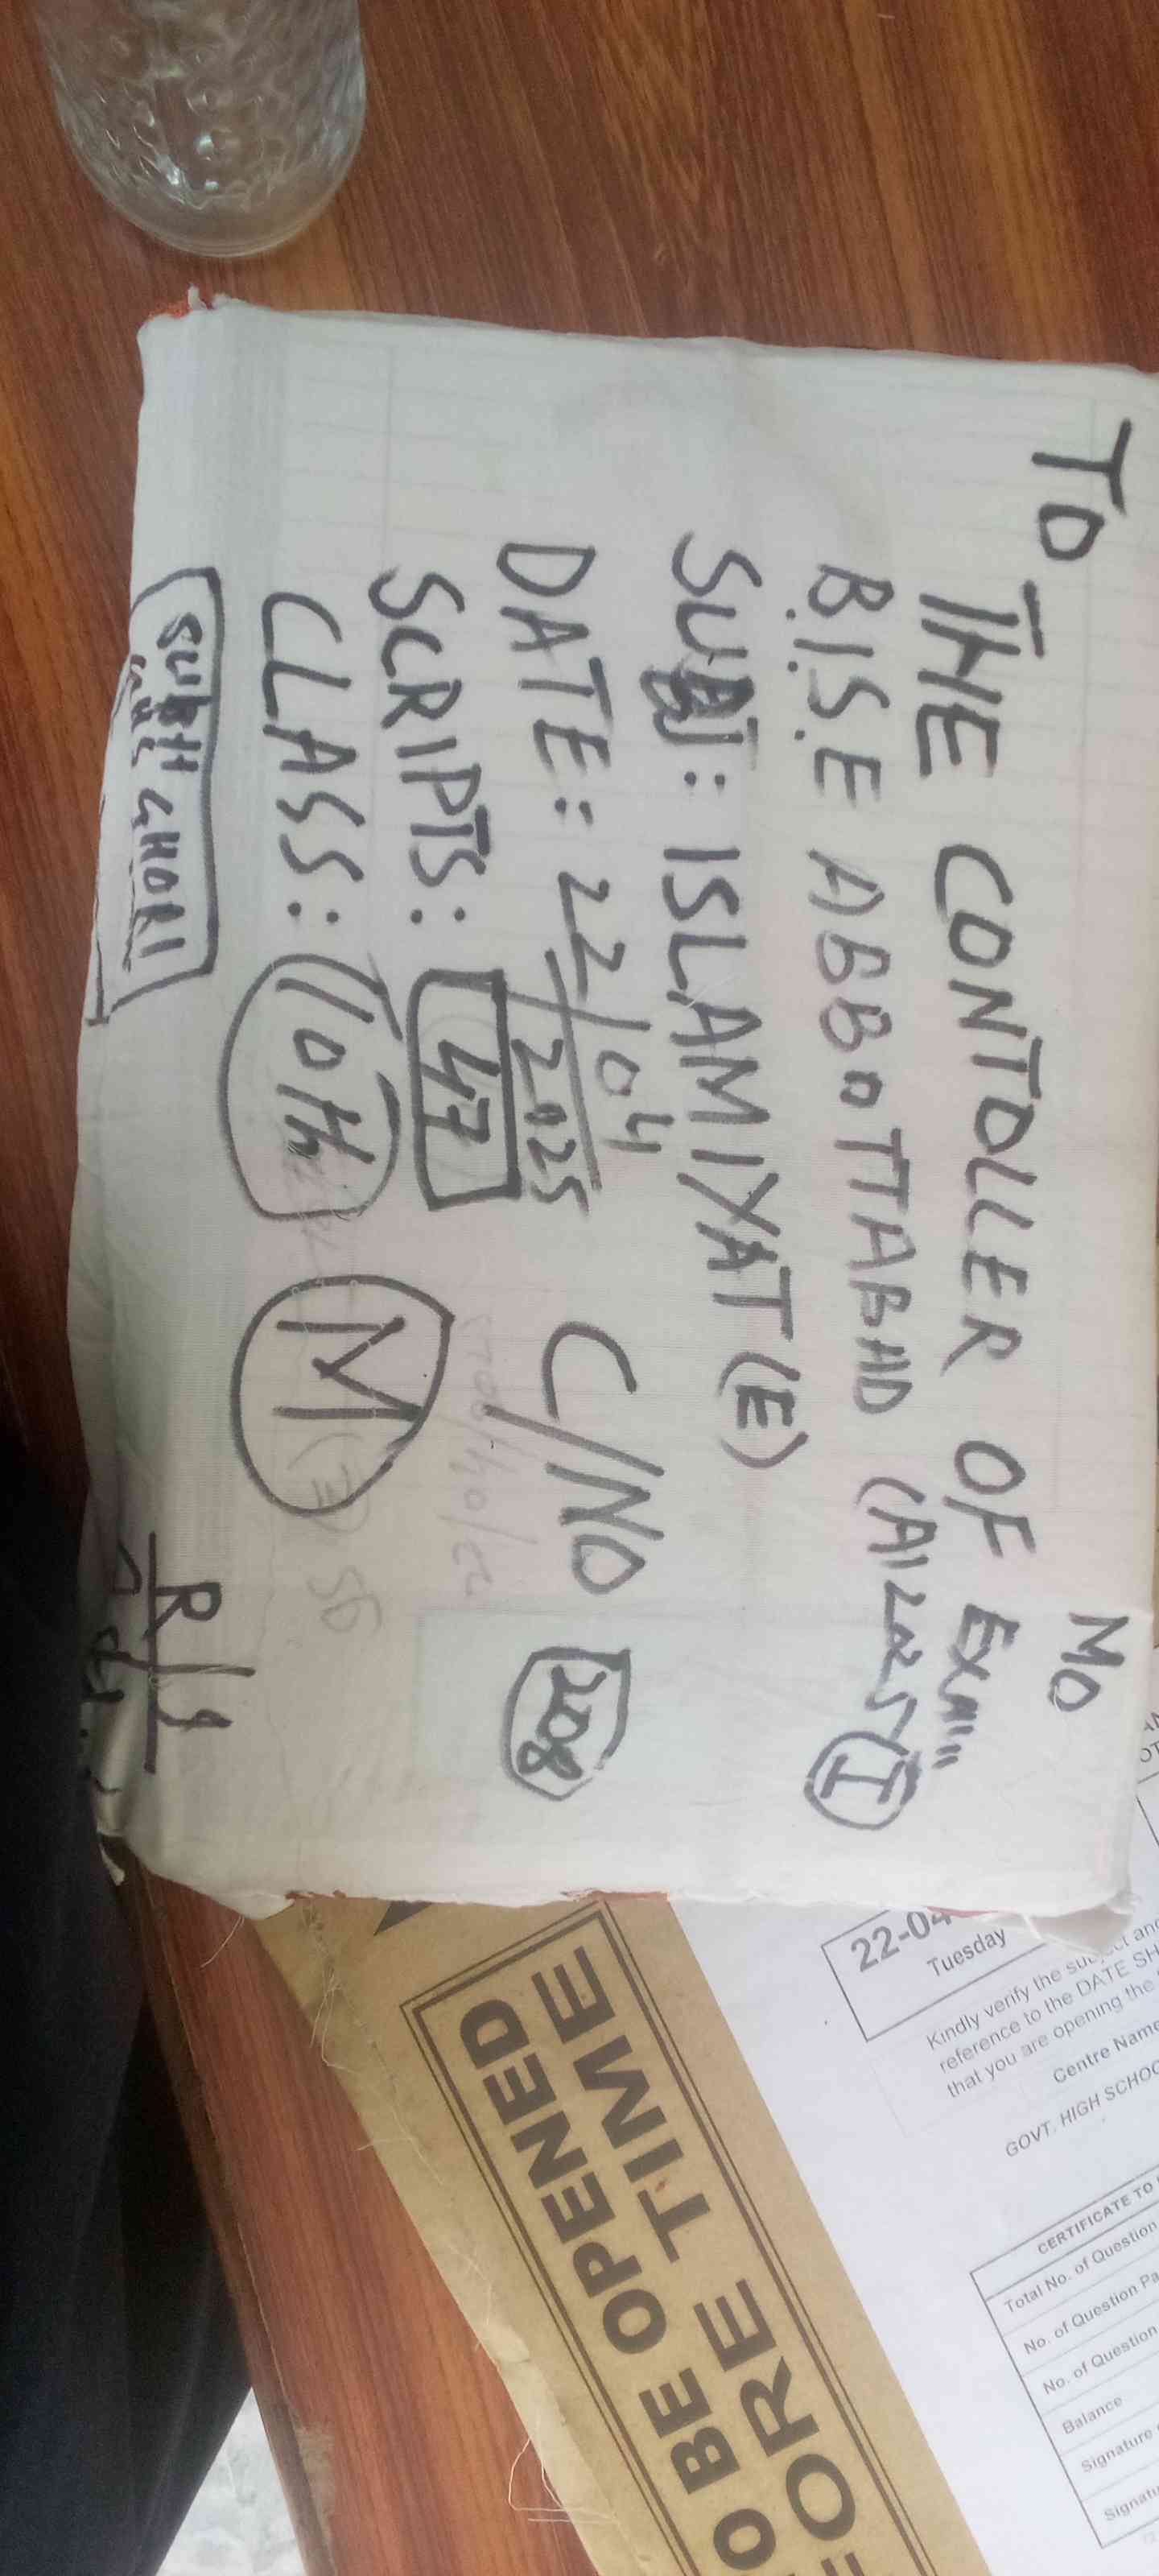 TO
MO
THE CONTOLLER OF EXAM
B.I.S.E ABBOTTABAD (A1 2025) I
SUBJ: ISLAMIYAT (E)
DATE: 22/04
2025
C/NO 208
SCRIPTS: 47
CLASS: 10th M
SUBH
GHORI
R/S
22-04
Tuesday
Kindly verify the subject and
reference to the DATE SH
that you are opening the
Centre Name
GOVT. HIGH SCHOO
CERTIFICATE TO
Total No. of Question
No. of Question Pa
No. of Question
Balance
Signature
Signatu
O BE OPENED
FORE TIME